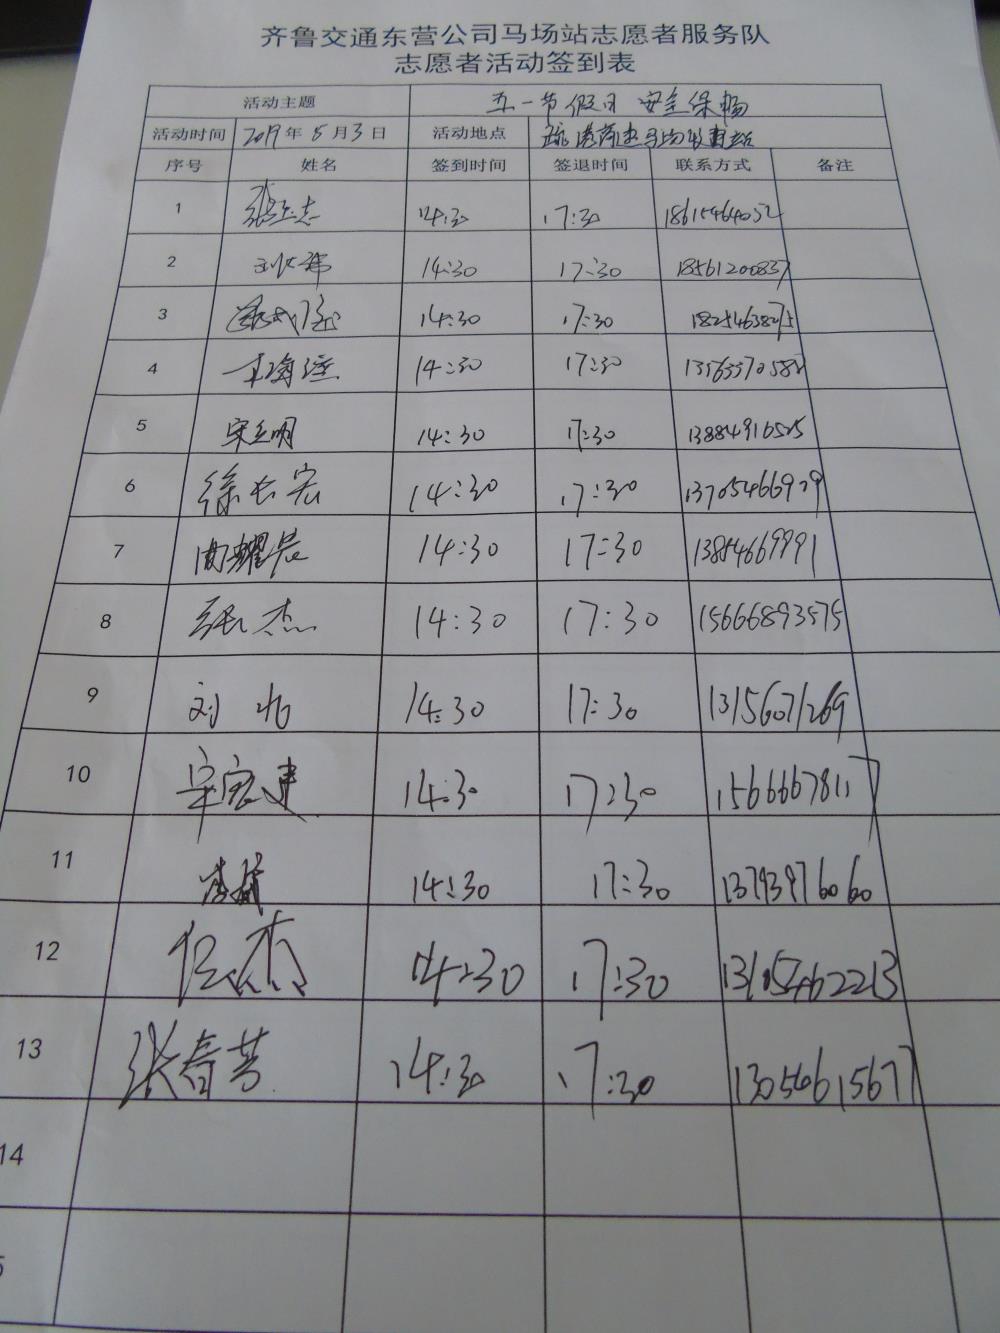 齐鲁交通东营公司马场站志愿者服务队
志愿者活动签到表
活动主题 五一节假日 安全保畅
活动时间 2019年5月3日 活动地点 疏港高速马场收费站
序号 姓名 签到时间 签退时间 联系方式 备注
1 14:30 17:30 18615464032
2 14:30 17:30 18561200837
3 14:30 17:30 18254638275
4 14:30 17:30 13563370582
5 宋立明 14:30 17:30
6 徐长宏 14:30 17:30 13705466929
7 曲耀辰 14:30 17:30 13854669991
8 张杰 14:30 17:30 15666893575
9 刘 14:30 17:30 13156071269
10 14:30 17:30 15666678117
11 14:30 17:30 13793976060
12 任杰 14:30 17:30 13105462213
13 张春芳 14:30 17:30 13054615677
14
5